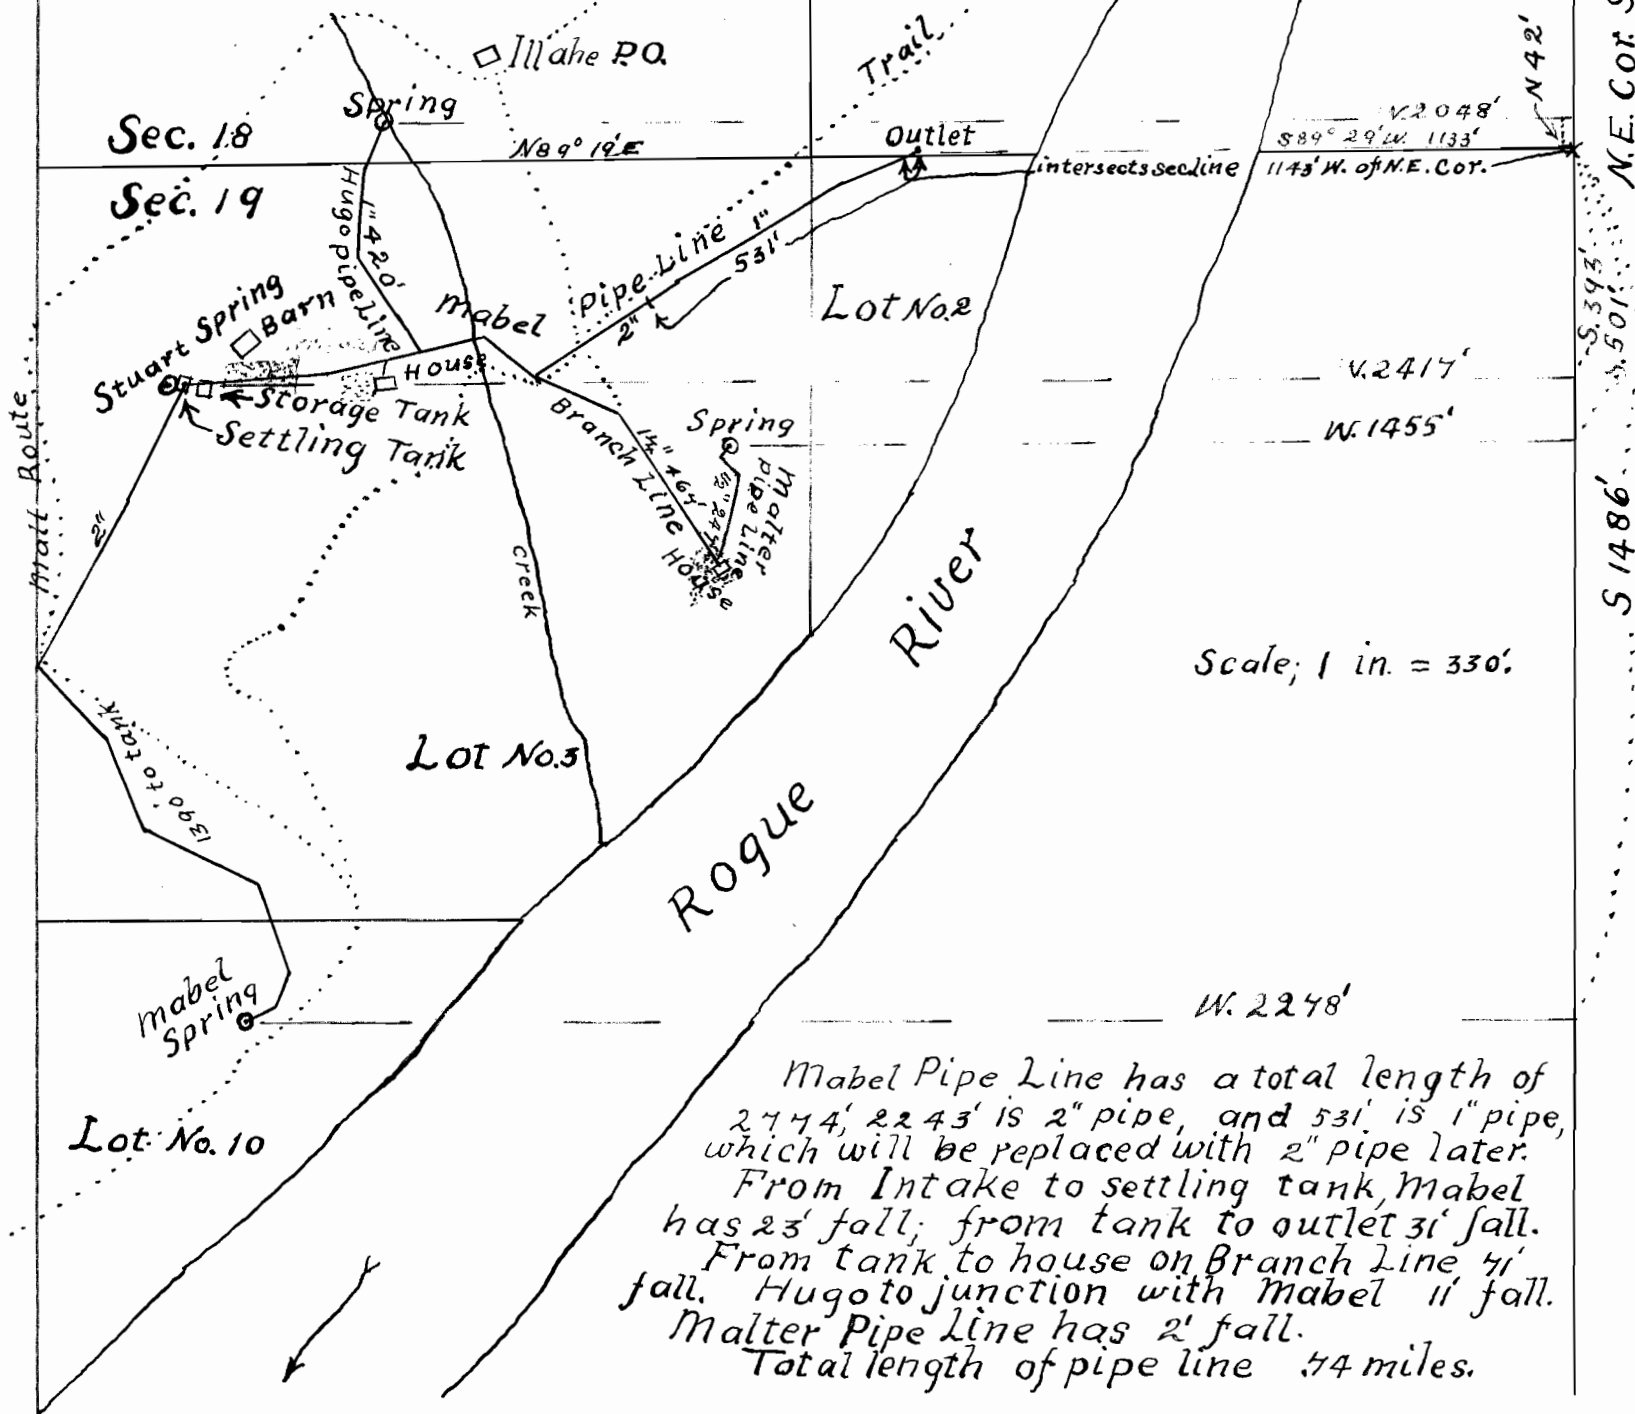 Illahe P.O.
Trail
N 42'
N.E. Cor. S
Spring
Sec. 18
N 89° 19' E
Outlet
V. 2048'
S 89° 29' W. 1133'
intersects sec line
1143' W. of N.E. Cor.
Sec. 19
Hugo pipe Line
1" 420'
Pipe Line 1"
531'
2"
Lot No. 2
S. 393'
S. 501'
Stuart Spring
Barn
Mabel
House
Storage Tank
Settling Tank
V. 2417'
W. 1455'
Mail Route
2"
Branch Line
1½" 467'
Spring
Malter
pipe Line
House
Creek
S 1486'
River
Scale; 1 in. = 330'.
1390' to tank
Lot No. 3
Rogue
Mabel
Spring
W. 2278'
Lot No. 10
Mabel Pipe Line has a total length of
2774', 2243' is 2" pipe, and 531' is 1" pipe,
which will be replaced with 2" pipe later.
From Intake to settling tank, Mabel
has 23' fall; from tank to outlet 31' fall.
From tank to house on Branch Line 71'
fall. Hugo to junction with Mabel 11' fall.
Malter Pipe Line has 2' fall.
Total length of pipe line .74 miles.